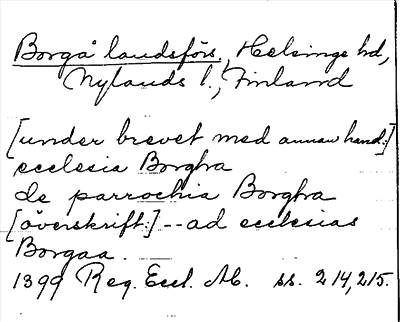 Borgå landsförs., Helsinge hd,
Nylands l., Finland
[under brevet med annan hand:]
ecclesia Borgha
de parrochia Borgha
[överskrift:] -- ad ecclesias
Borgaa.
1399 Reg. Eccl. Ab. ss. 214, 215.